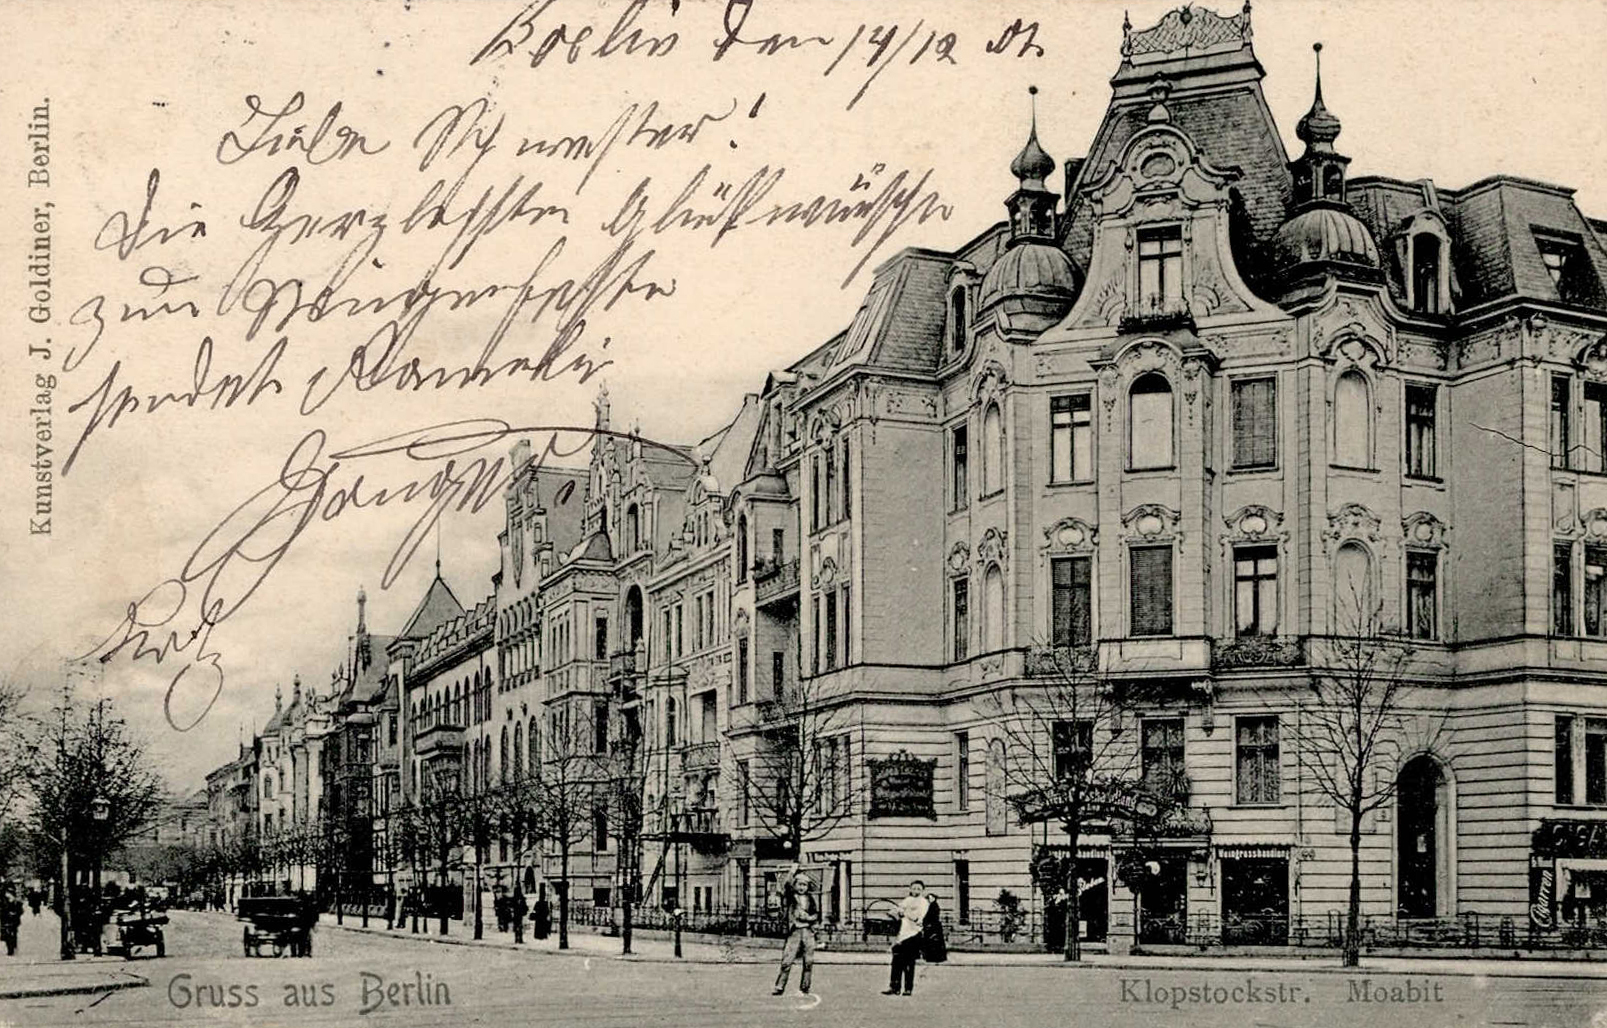 Berlin den 14/12 01.
Liebe Schwester!
Die Herzlichsten Glückwünsche
zum Wiegenfeste
sendet
Kunstverlag J. Goldiner, Berlin.
Weingrosshandlung
Cigarren
Gruss aus Berlin
Klopstockstr. Moabit